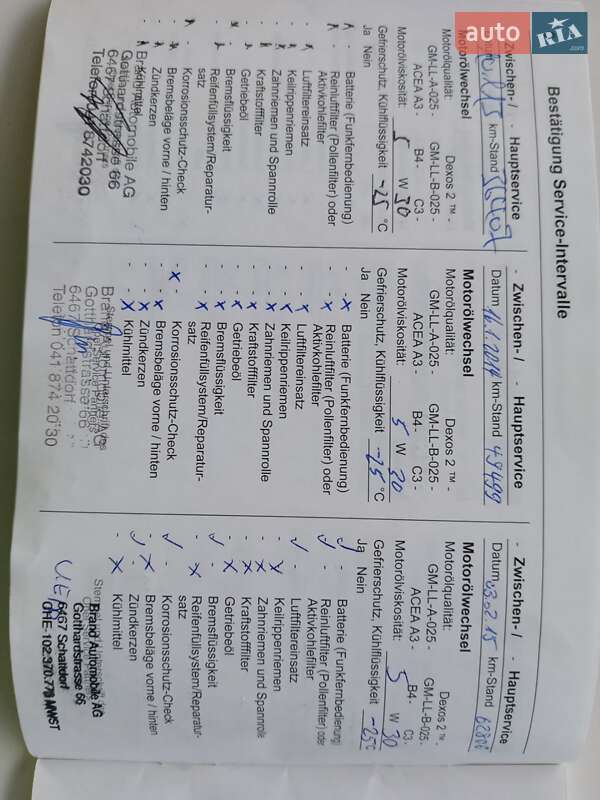 auto RIA .com
Bestätigung Service-Intervalle
- Zwischen-/ - Hauptservice
km-Stand
Motorölwechsel
Motorölqualität: Dexos 2 ™ -
GM-LL-A-025 - GM-LL-B-025 -
ACEA A3 - B4 - C3 -
Motorölviskosität: 5 W 30
Gefrierschutz, Kühlflüssigkeit -25 °C
Ja Nein
Batterie (Funkfernbedienung)
Reinluftfilter (Pollenfilter) oder
Aktivkohlefilter
Luftfiltereinsatz
Keilrippenriemen
Zahnriemen und Spannrolle
Kraftstofffilter
Getriebeöl
Bremsflüssigkeit
Reifenfüllsystem/Reparatur-
satz
Korrosionsschutz-Check
Bremsbeläge vorne / hinten
Zündkerzen
Kühlmittel
Gotthardstrasse 66
6467 Schattdorf
- Zwischen-/ - Hauptservice
Datum 14.1.2014 km-Stand 49499
Motorölwechsel
Motorölqualität: Dexos 2 ™ -
GM-LL-A-025 - GM-LL-B-025 -
ACEA A3 - B4 - C3 -
Motorölviskosität: 5 W 30
Gefrierschutz, Kühlflüssigkeit -25 °C
Ja Nein
- x Batterie (Funkfernbedienung)
- x Reinluftfilter (Pollenfilter) oder
Aktivkohlefilter
- x Luftfiltereinsatz
- x Keilrippenriemen
- x Zahnriemen und Spannrolle
- x Kraftstofffilter
- x Getriebeöl
- x Bremsflüssigkeit
- x Reifenfüllsystem/Reparatur-
satz
x - Korrosionsschutz-Check
- x Bremsbeläge vorne / hinten
- x Zündkerzen
- x Kühlmittel
6467 Schattdorf
Telefon 041 874 20 30
- Zwischen-/ - Hauptservice
Datum 03.02.15 km-Stand
Motorölwechsel
Motorölqualität: Dexos 2 ™ -
GM-LL-A-025 - GM-LL-B-025 -
ACEA A3 - B4 - C3 -
Motorölviskosität: 5 W 30
Gefrierschutz, Kühlflüssigkeit -25°C
Ja Nein
✓ - Batterie (Funkfernbedienung)
✓ - Reinluftfilter (Pollenfilter) oder
Aktivkohlefilter
✓ - Luftfiltereinsatz
- x Keilrippenriemen
- x Zahnriemen und Spannrolle
- x Kraftstofffilter
- x Getriebeöl
✓ - Bremsflüssigkeit
- x Reifenfüllsystem/Reparatur-
satz
✓ - Korrosionsschutz-Check
- x Bremsbeläge vorne / hinten
✓ - Zündkerzen
- x Kühlmittel
Brand Automobile AG
Gotthardstrasse 66
6467 Schattdorf
CHE-102.370.778 MWST